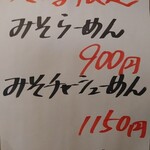 みそらーめん
900円
みそチャーシューめん
1150円